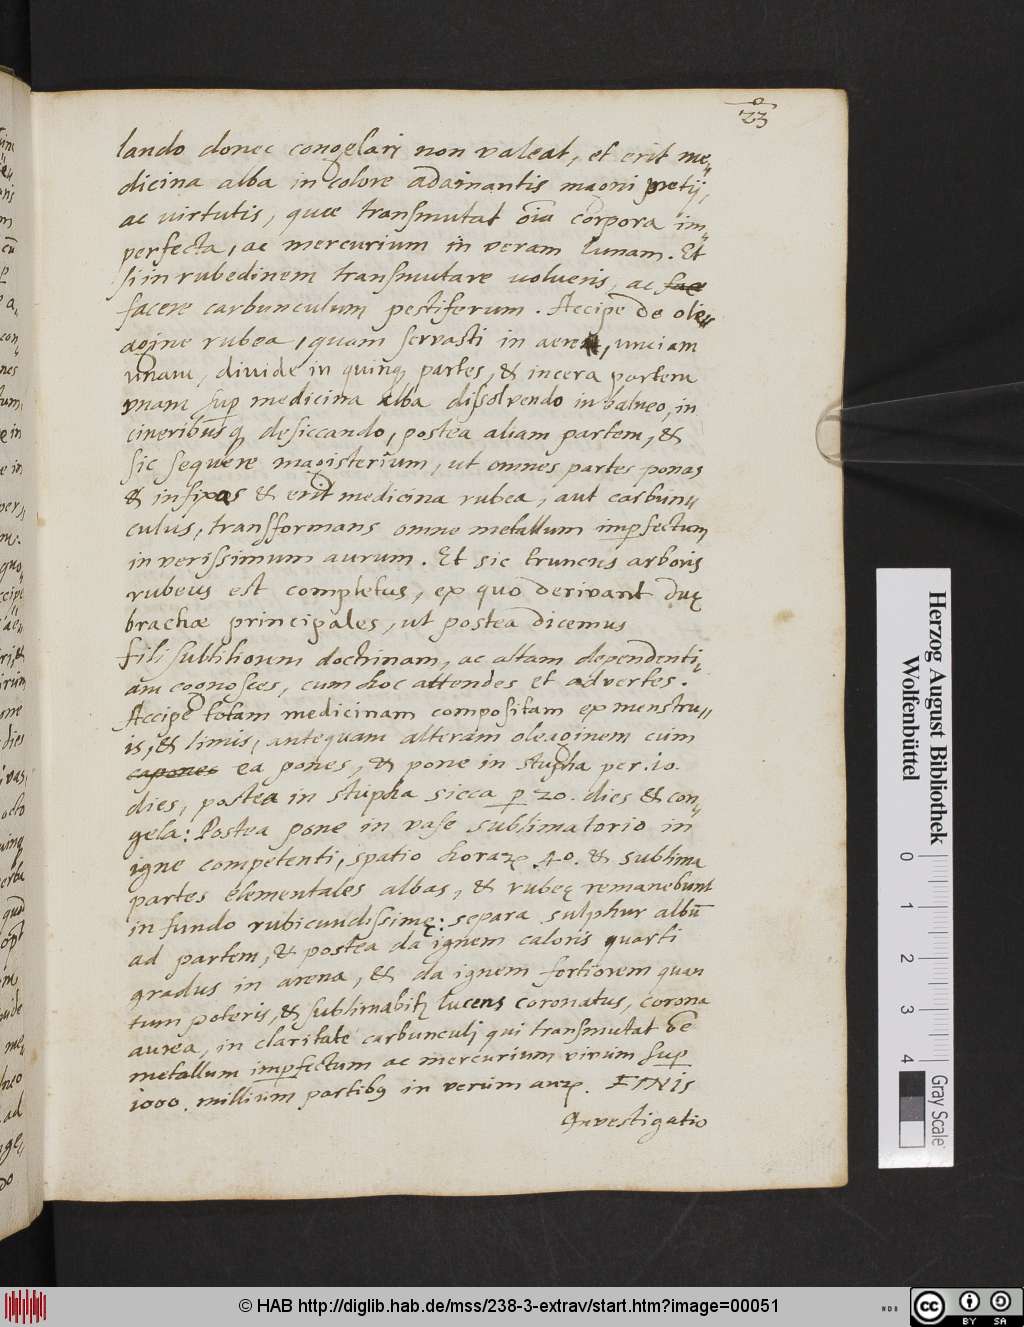 23
lando donec congelari non valeat, et erit me„
dicina alba in colore adamantis magni pretij,
ac virtutis, quæ transmutat oĩa corpora im„
perfecta, ac mercurium in veram lunam. Et
si in rubedinem transmutare volueris, ac fac̃e
facere carbunculum pestiferum. Accipe de ole„
agine rubea, quam servasti in aere, unciam
unam, divide in quinq, partes, & incera partem
vnam sup medicina alba dissolvendo in balneo, in
cineribusq, desiccando, postea aliam partem, &
sic sequere magisterium, ut omnes partes ponas
& infixas & erit medicina rubea, aut carbun„
culus, transformans omne metallum impfectum
in verissimum aurum. Et sic truncus arboris
rubeus est completus, ex quo derivant duę
brachæ principales, ut postea dicemus
fili subtiliorum doctrinam, ac altam dependenti„
am cognosces, cum hoc attendes et advertes.
Accipe totam medicinam compositam ex menstru„
is, & limis, antequam alteram oleaginem cum
capones ea pones, & pone in stupha per .10.
dies, postea in stupha sicca p 20. dies & con„
gela: Postea pone in vase sublimatorio in
igne competenti, spatio horaꝝ .40. & sublima
partes elementales albas, & rubeę remanebunt
in fundo rubicundissimę: separa sulphur albũ
ad partem, & postea da ignem caloris quarti
gradus in arena, & da ignem fortiorem quan
tum poteris, & sublimabitꝛ lucens coronatus, corona
aurea, in claritate carbunculj qui transmutat õe
metallum impfectum ac mercurium vivum sup
1000. millium partibꝯ in verum auꝝ. FINIS
Investigatio
Herzog August Bibliothek
Wolfenbüttel
0 1 2 3 4
Gray Scale
© HAB http://diglib.hab.de/mss/238-3-extrav/start.htm?image=00051
NDB
cc BY SA